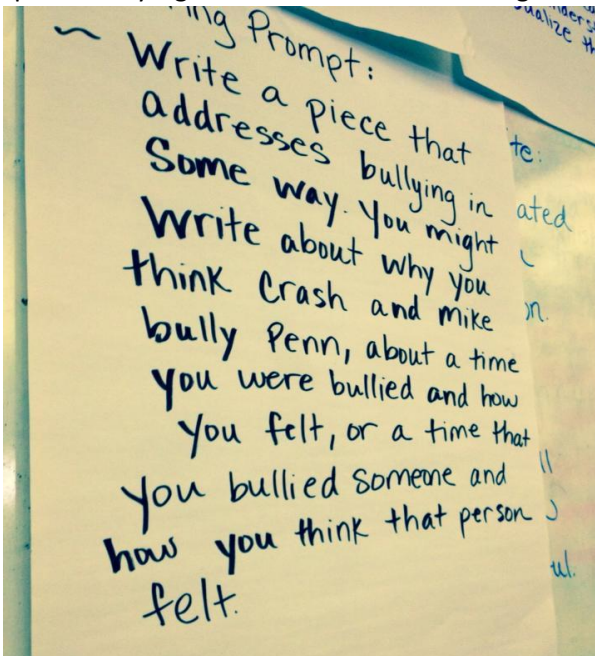 ing Prompt:
~ Write a piece that
addresses bullying in
Some way. You might
Write about why you
think Crash and mike
bully Penn, about a time
you were bullied and how
you felt, or a time that
you bullied someone and
how you think that person
felt.
te:
ated
on.
ll
ul.